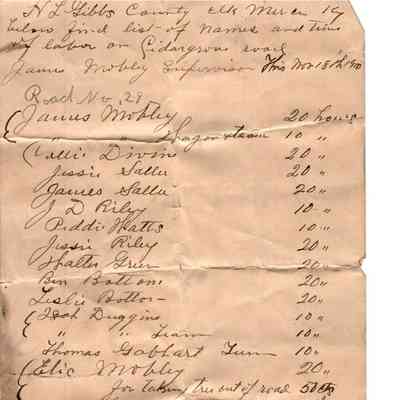 H L Gibbs County Clk Mercer Ky
below find list of names and time
of labor on Cidargrove road
James Mobley Supervisor This Nov 18th 1910
Road No. 29
James Mobley 20 hours
" " Wagon & team 10 "
Ollie Divine 20 "
Jessie Sallee 20 "
James Sallee 20 "
J D Riley 10 "
Peddie Watts 10 "
Jessie Riley 20 "
Walter Grien 20 "
Ben Bottoms 20 "
Leslie Bottom 20 "
Isah Duggins 10 "
" " Team 10 "
Thomas Gabhart Team 10 "
Elic Mobley 20 "
for taking tree out of road 50 cts